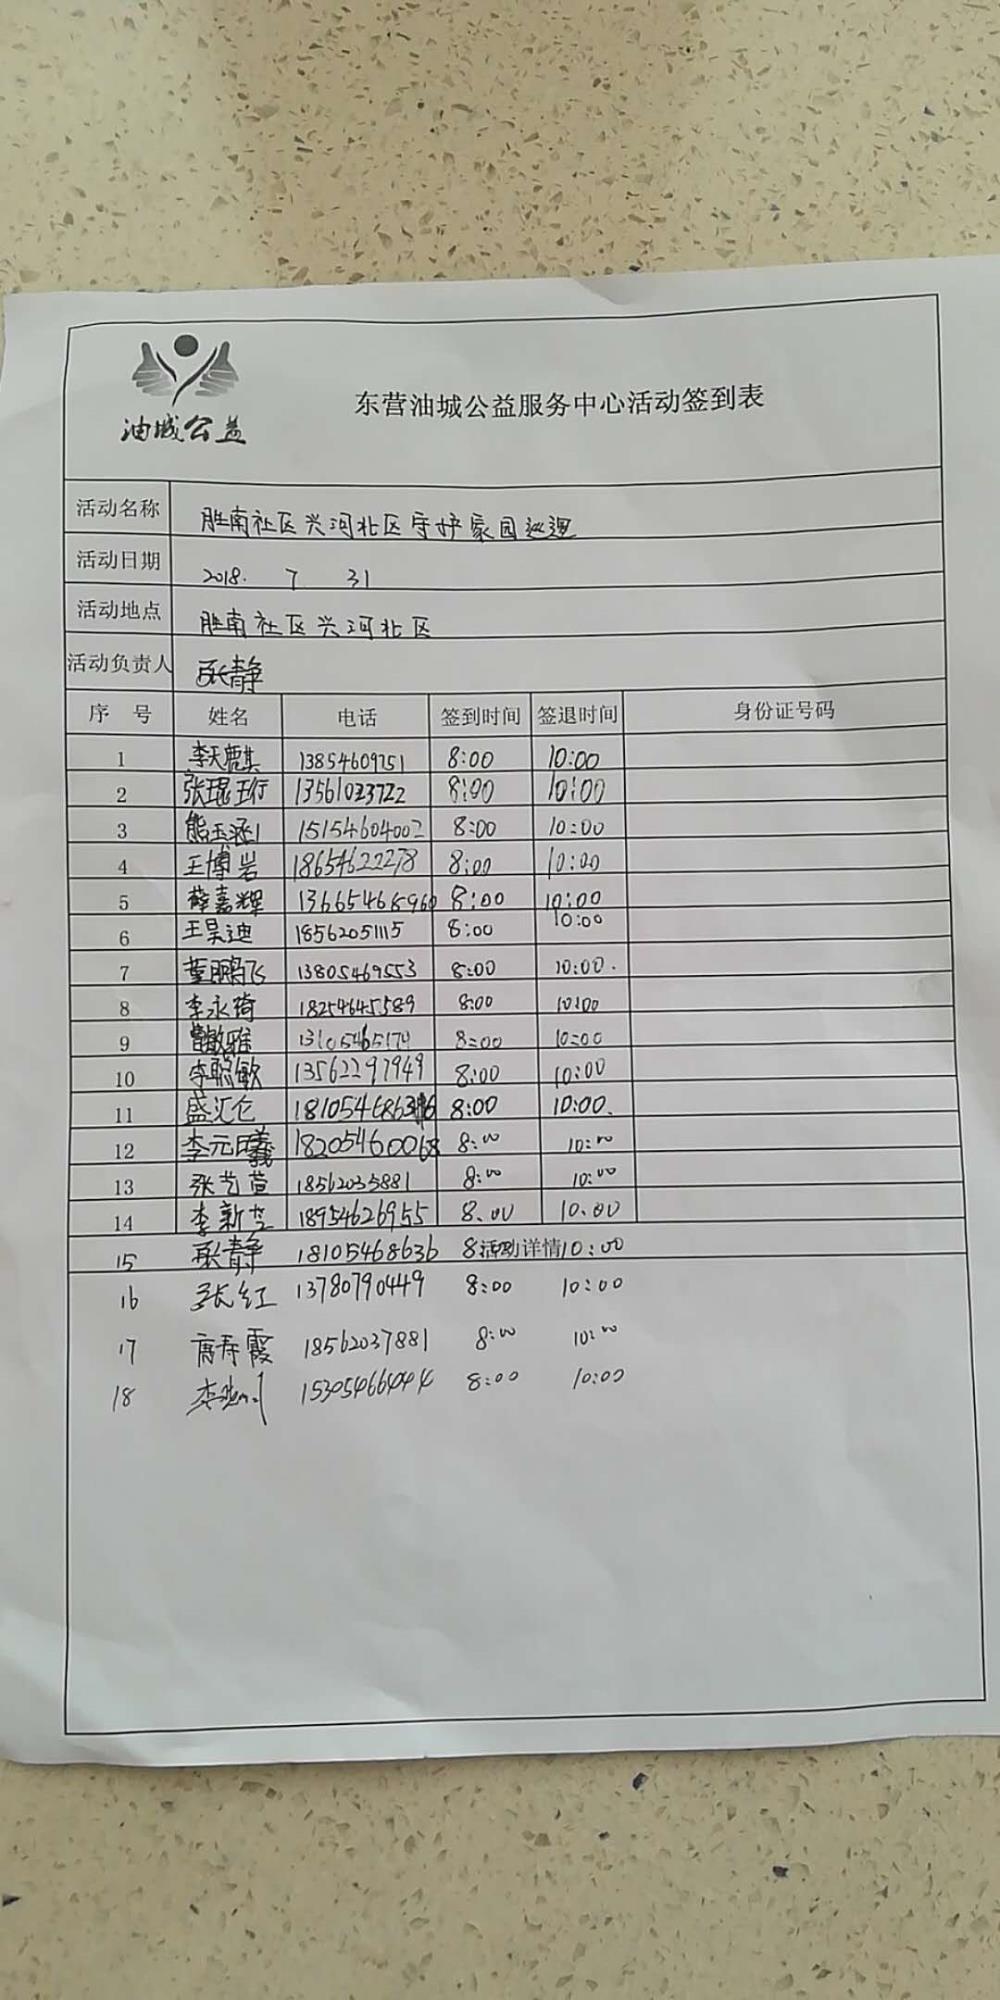 油城公益
东营油城公益服务中心活动签到表
活动名称 胜南社区兴河北区守护家园巡逻
活动日期 2018. 7 31
活动地点 胜南社区兴河北区
活动负责人 张静
序 号 姓名 电话 签到时间 签退时间 身份证号码
1 李天麒 13854609751 8:00 10:00
2 张琨珩 13561023722 8:00 10:00
3 熊玉涵 15154604002 8:00 10:00
4 王博岩 18654622278 8:00 10:00
5 薛嘉辉 13665468960 8:00 10:00
6 王昊迪 18562051115 8:00 10:00
7 董鹏飞 13805469553 8:00 10:00.
8 李永琦 18254645589 8:00 10:00
9 曾敏雅 8:00 10:00
10 李聪敏 13562297949 8:00 10:00
11 盛汇仑 8:00 10:00.
12 李元曦 18205460068 8:00 10:00
13 张艺萱 18562035881 8:00 10:00
14 李新芝 18954626955 8.00 10.00
15 张静 18105468636 8 活动详情 10:00
16 张红 13780790449 8:00 10:00
17 高寿霞 18562037881 8:00 10:00
18 15305466044 8:00 10:00